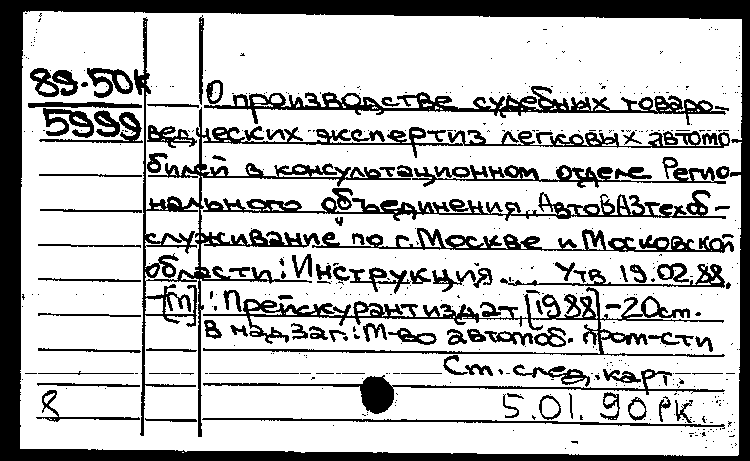 89-50к
5999
О производстве судебных товаро-
ведческих экспертиз легковых автомо-
билей в консультационном отделе Регио-
нального объединения "АвтоВАЗтехоб-
служивание" по г. Москве и Московской
области: Инструкция... Утв. 19.02.88.
- [М].: Прейскурантиздат, [1988]. - 20 ст.
В над.заг.: М-во автомоб. пром-сти
См. след. карт.
8
5.01.90 РК.